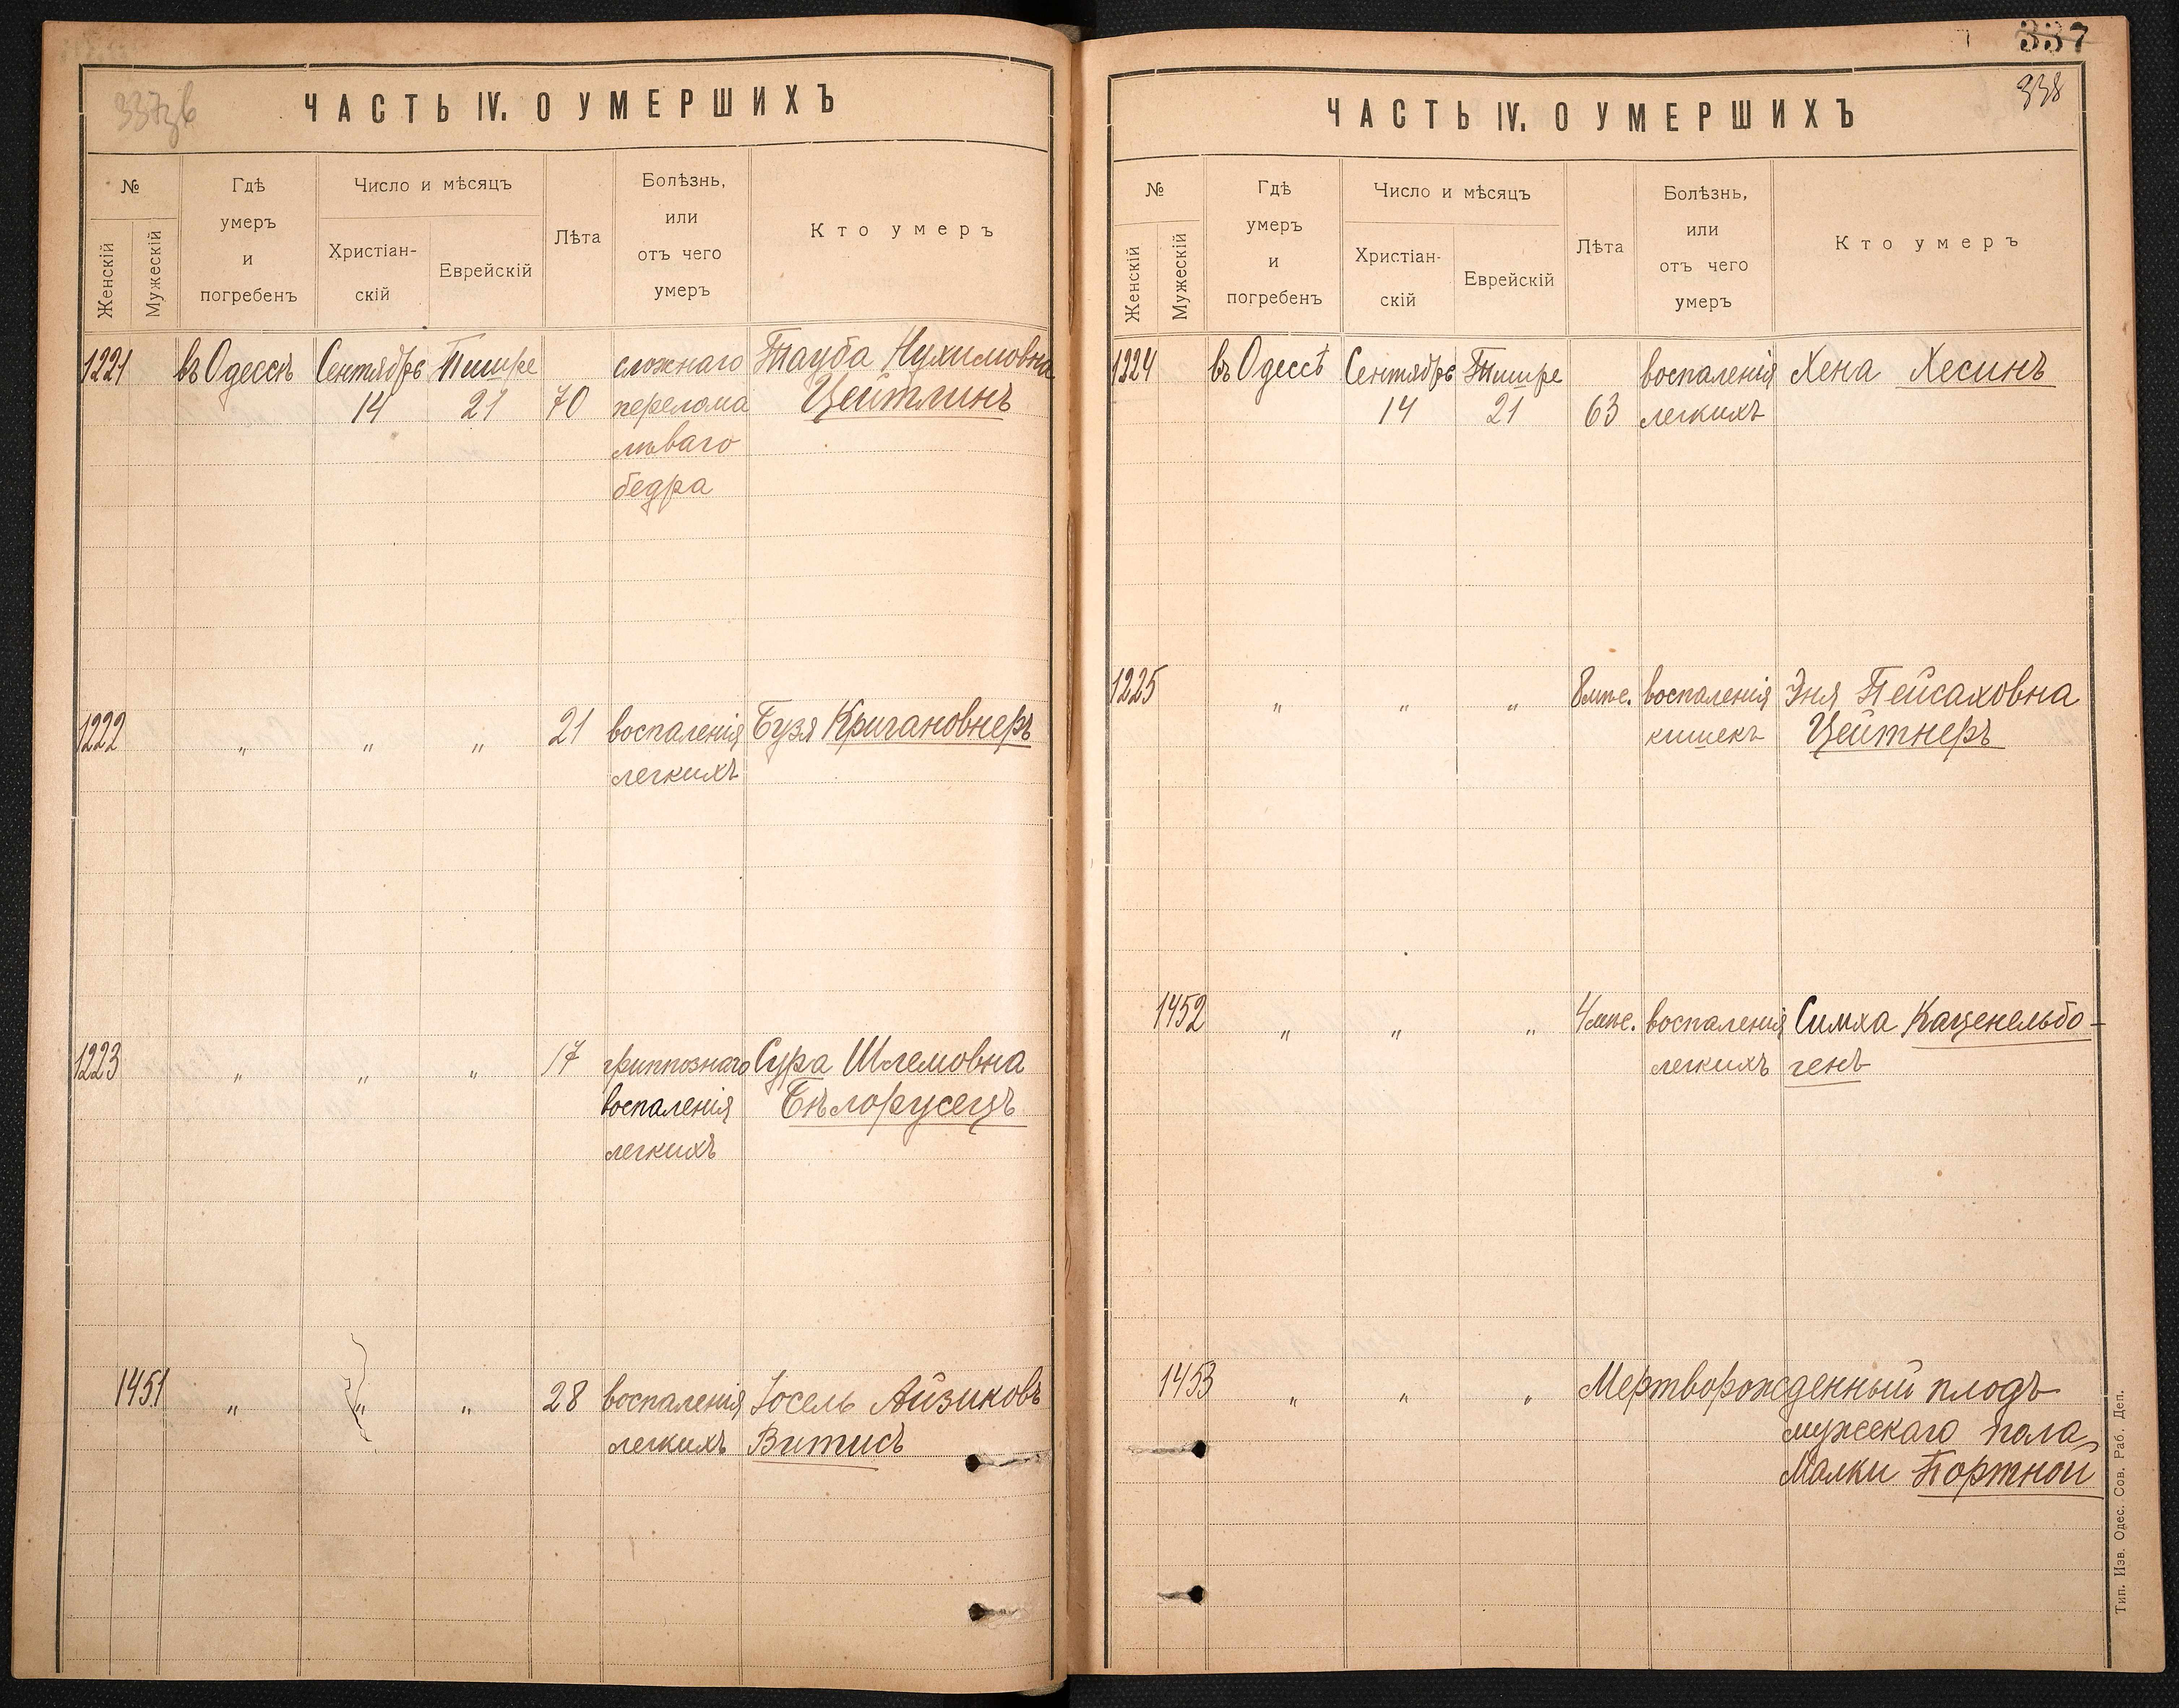 337зв
ЧАСТЬ IV. О УМЕРШИХЪ
№
Женскій
Мужескій
Гдѣ
умеръ
и
погребенъ
Число и мѣсяцъ
Христіан-
скій
Еврейскій
Лѣта
Болѣзнь,
или
отъ чего
умеръ
Кто умеръ
1221 въ Одессѣ Сентябрь Тишре сложнаго Тауба Нухимовна
14 21 70 перелома Цейтлинъ
лѣваго
бедра
1222 " " " 21 воспаленія Бузя Кригановнеръ
легкихъ
1223 " " " 17 гриппознаго Сура Шлемовна
воспаленія Бѣлорусецъ
легкихъ
1451 " " " 28 воспаленія Іосель Айзиковъ
легкихъ Витисъ
337
338
ЧАСТЬ IV. О УМЕРШИХЪ
№
Женскій
Мужескій
Гдѣ
умеръ
и
погребенъ
Число и мѣсяцъ
Христіан-
скій
Еврейскій
Лѣта
Болѣзнь,
или
отъ чего
умеръ
Кто умеръ
1224 въ Одессѣ Сентябрь Тишре воспаленія Хена Хесинъ
14 21 63 легкихъ
1225 " " " 8 мѣс. воспаленія Эня Пейсаховна
кишекъ Цейтнеръ
1452 " " " 4 мѣс. воспаленія Симха Каценельбо-
легкихъ генъ
1453 " " " Мертворожденный плодъ
мужескаго пола
Малки Портной
Тип. Изв. Одес. Сов. Раб. Деп.